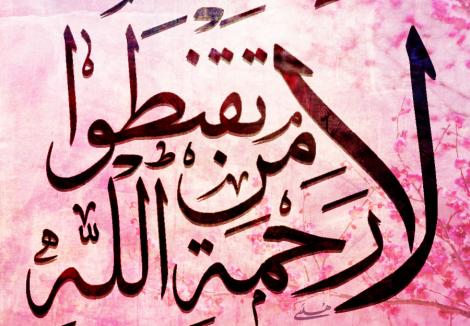 لا تقنطوا
من
رحمة الله